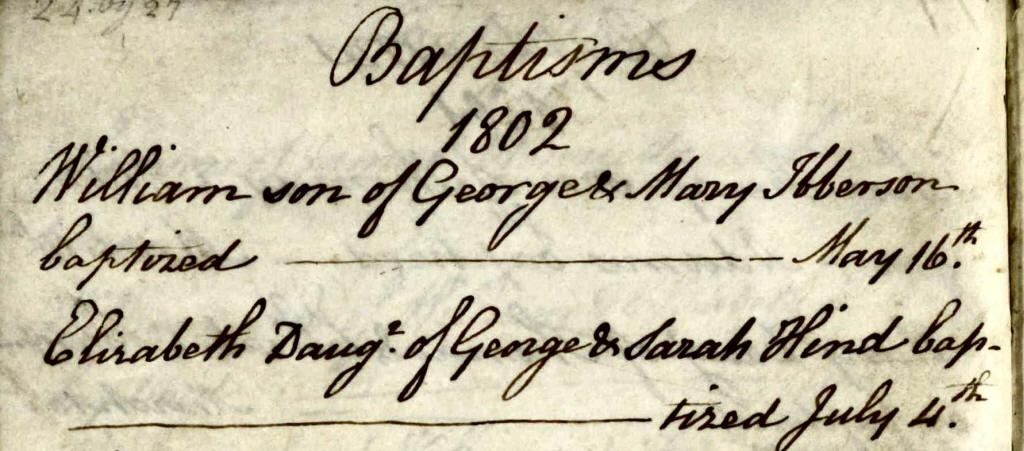 Baptisms
1802
William son of George & Mary Ibberson
baptized ——— May 16.th
Elizabeth Daug.r of George & Sarah Hind bap-
——— tized July 4.th